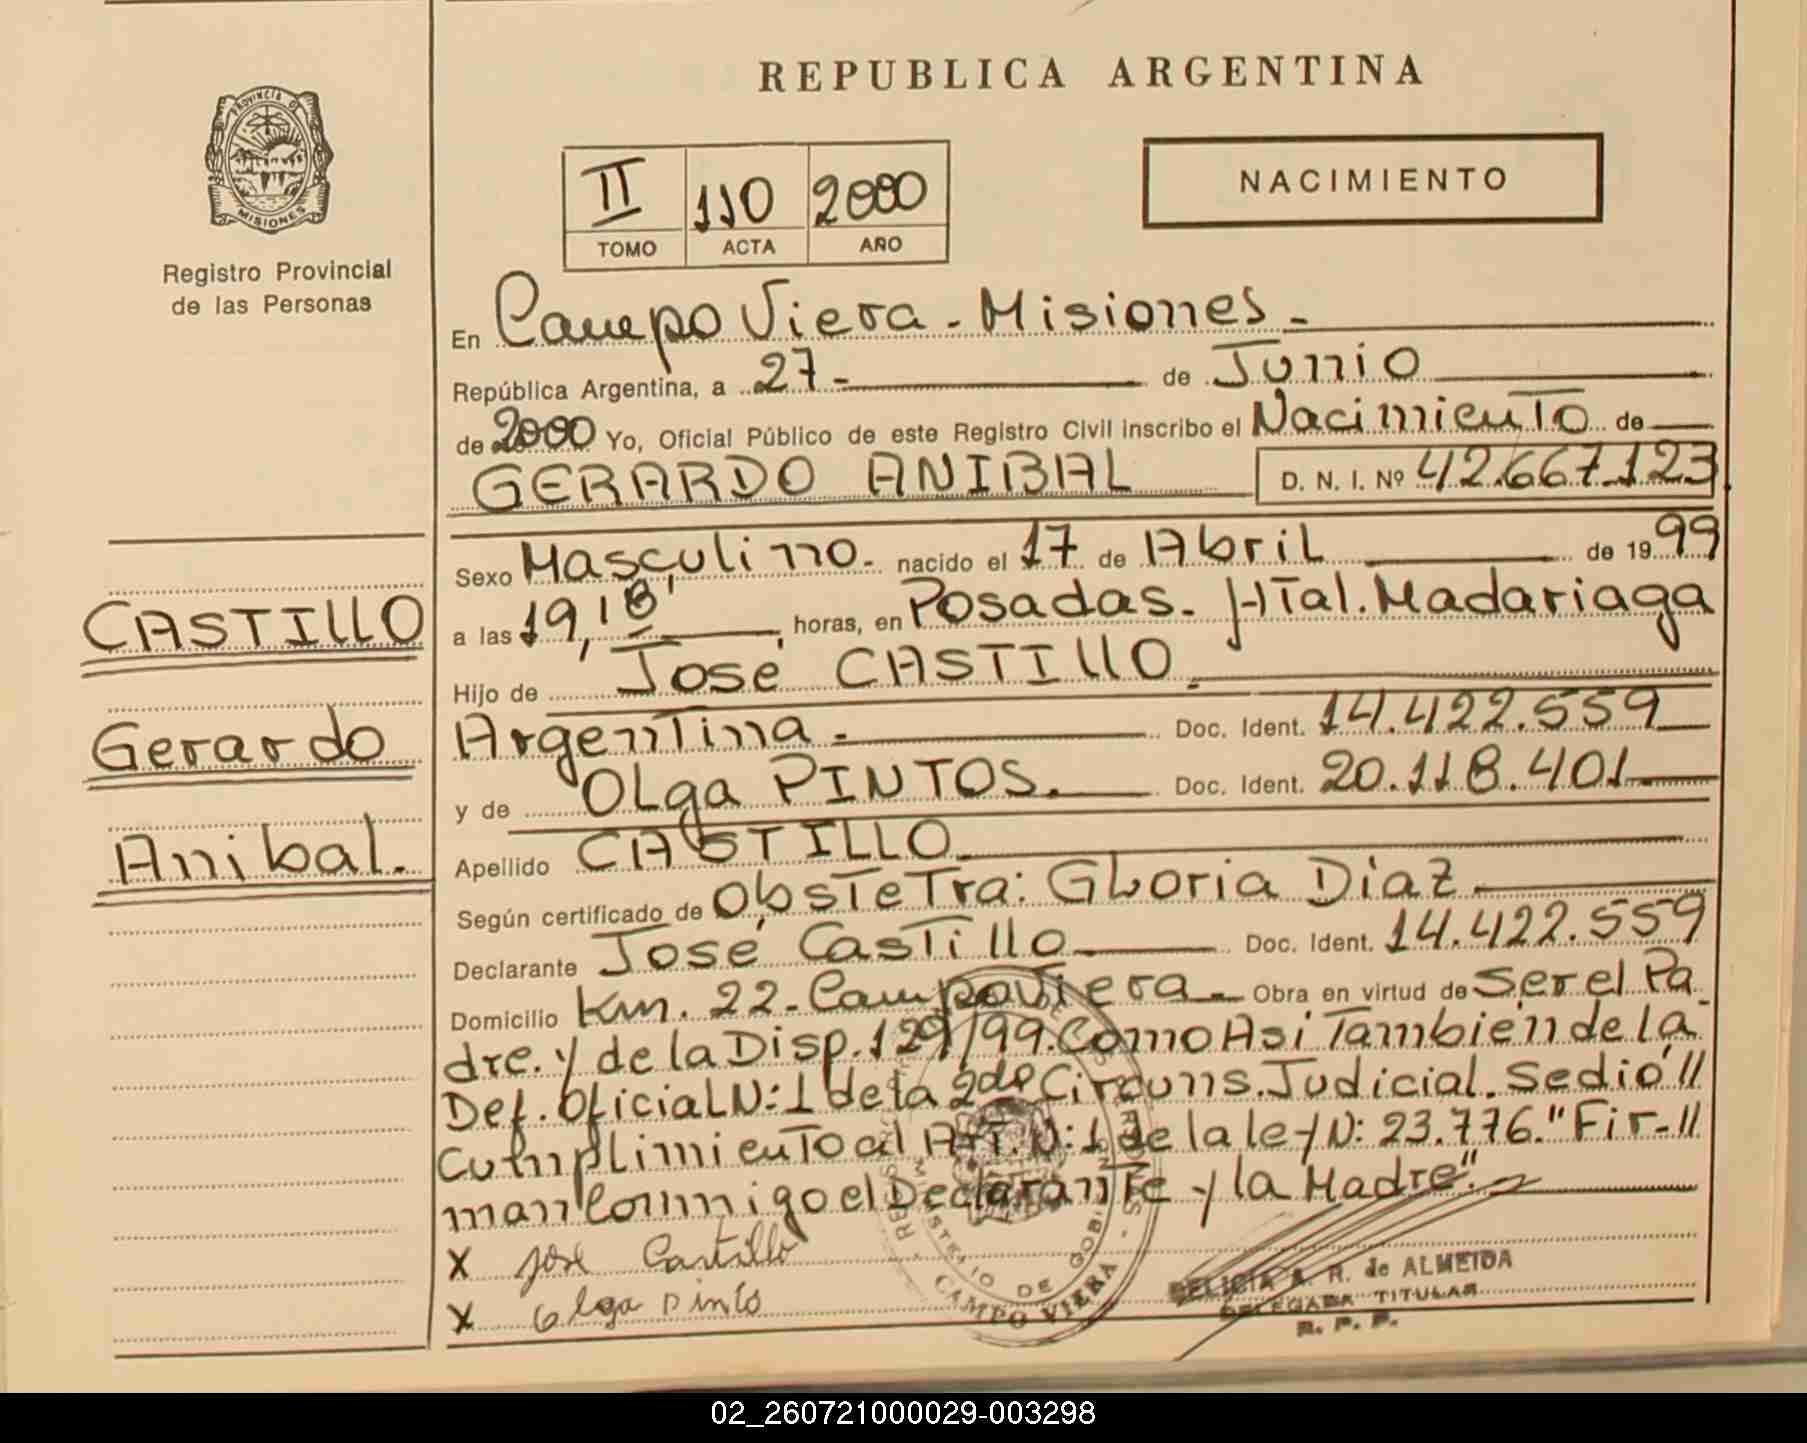 REPUBLICA ARGENTINA
PROVINCIA DE
MISIONES
Registro Provincial
de las Personas
II 110 2000
TOMO ACTA AÑO
NACIMIENTO
En Campo Viera - Misiones -
República Argentina, a 27 - de Junio
de 2000 Yo, Oficial Público de este Registro Civil inscribo el Nacimiento de
GERARDO ANIBAL D. N. I. Nº 42.667.123
Sexo Masculino. nacido el 17 de Abril de 1999
a las 19,18' horas, en Posadas - Htal. Madariaga
Hijo de José CASTILLO.
Argentina. - Doc. Ident. 14.422.559
y de OLga PINTOS. Doc. Ident. 20.118.401
Apellido CASTILLO.
Según certificado de Obstetra: GLoria Diaz
Declarante José Castillo Doc. Ident. 14.422.559
Domicilio Km. 22 - Campo Viera - Obra en virtud de ser el Pa
dre. y de la Disp. 129/99. Como Asi También de la
Def. Oficial N: 1 de la 2da Circuns. Judicial. Se dió //
Cumplimiento al Art. N: 1 de la ley N: 23.776. "Fir- //
man Conmigo el Declarante y la Madre".
X José Castillo
X Olga Pinto
CASTILLO
Gerardo
Anibal.
MINISTERIO DE GOBIERNO
CAMPO VIERA
DELICIA A. R. de ALMEIDA
DELEGADA TITULAR
R. P. P.
02_260721000029-003298